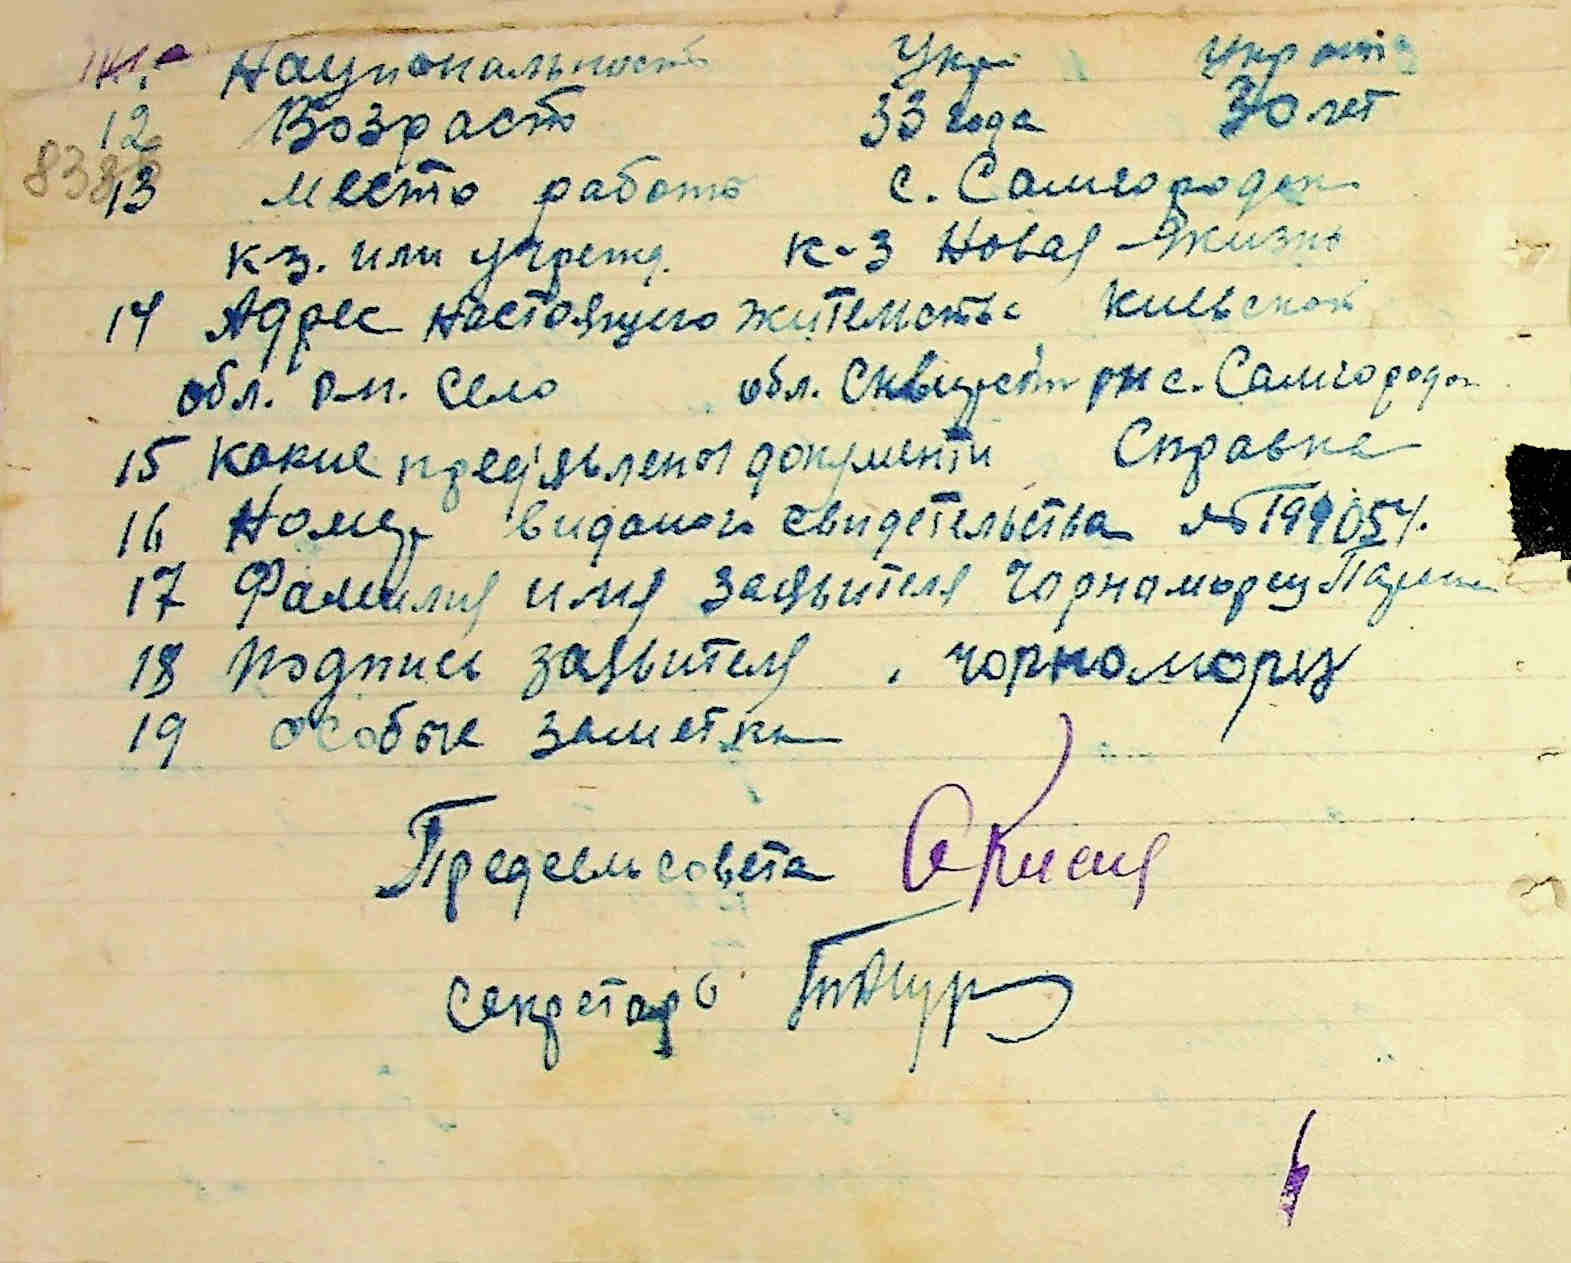 11. Национальность Укр. Укр
12 Возраст 33 года 30 лет
838
13 место работы с. Самгородок
к-з. или учрежд. к-з Новая Жизнь
14 Адрес настоящего жительства Киевской
обл. р.н. село обл. Сквирський рн с. Самгородок
15 какие предявлены документи Справка
16 Номер виданого свидетельства №
17 Фамилия имя заявителя Чорноморец
18 подпись заявителя чорноморец
19 особые заметки
Предсельсовета
секретарь